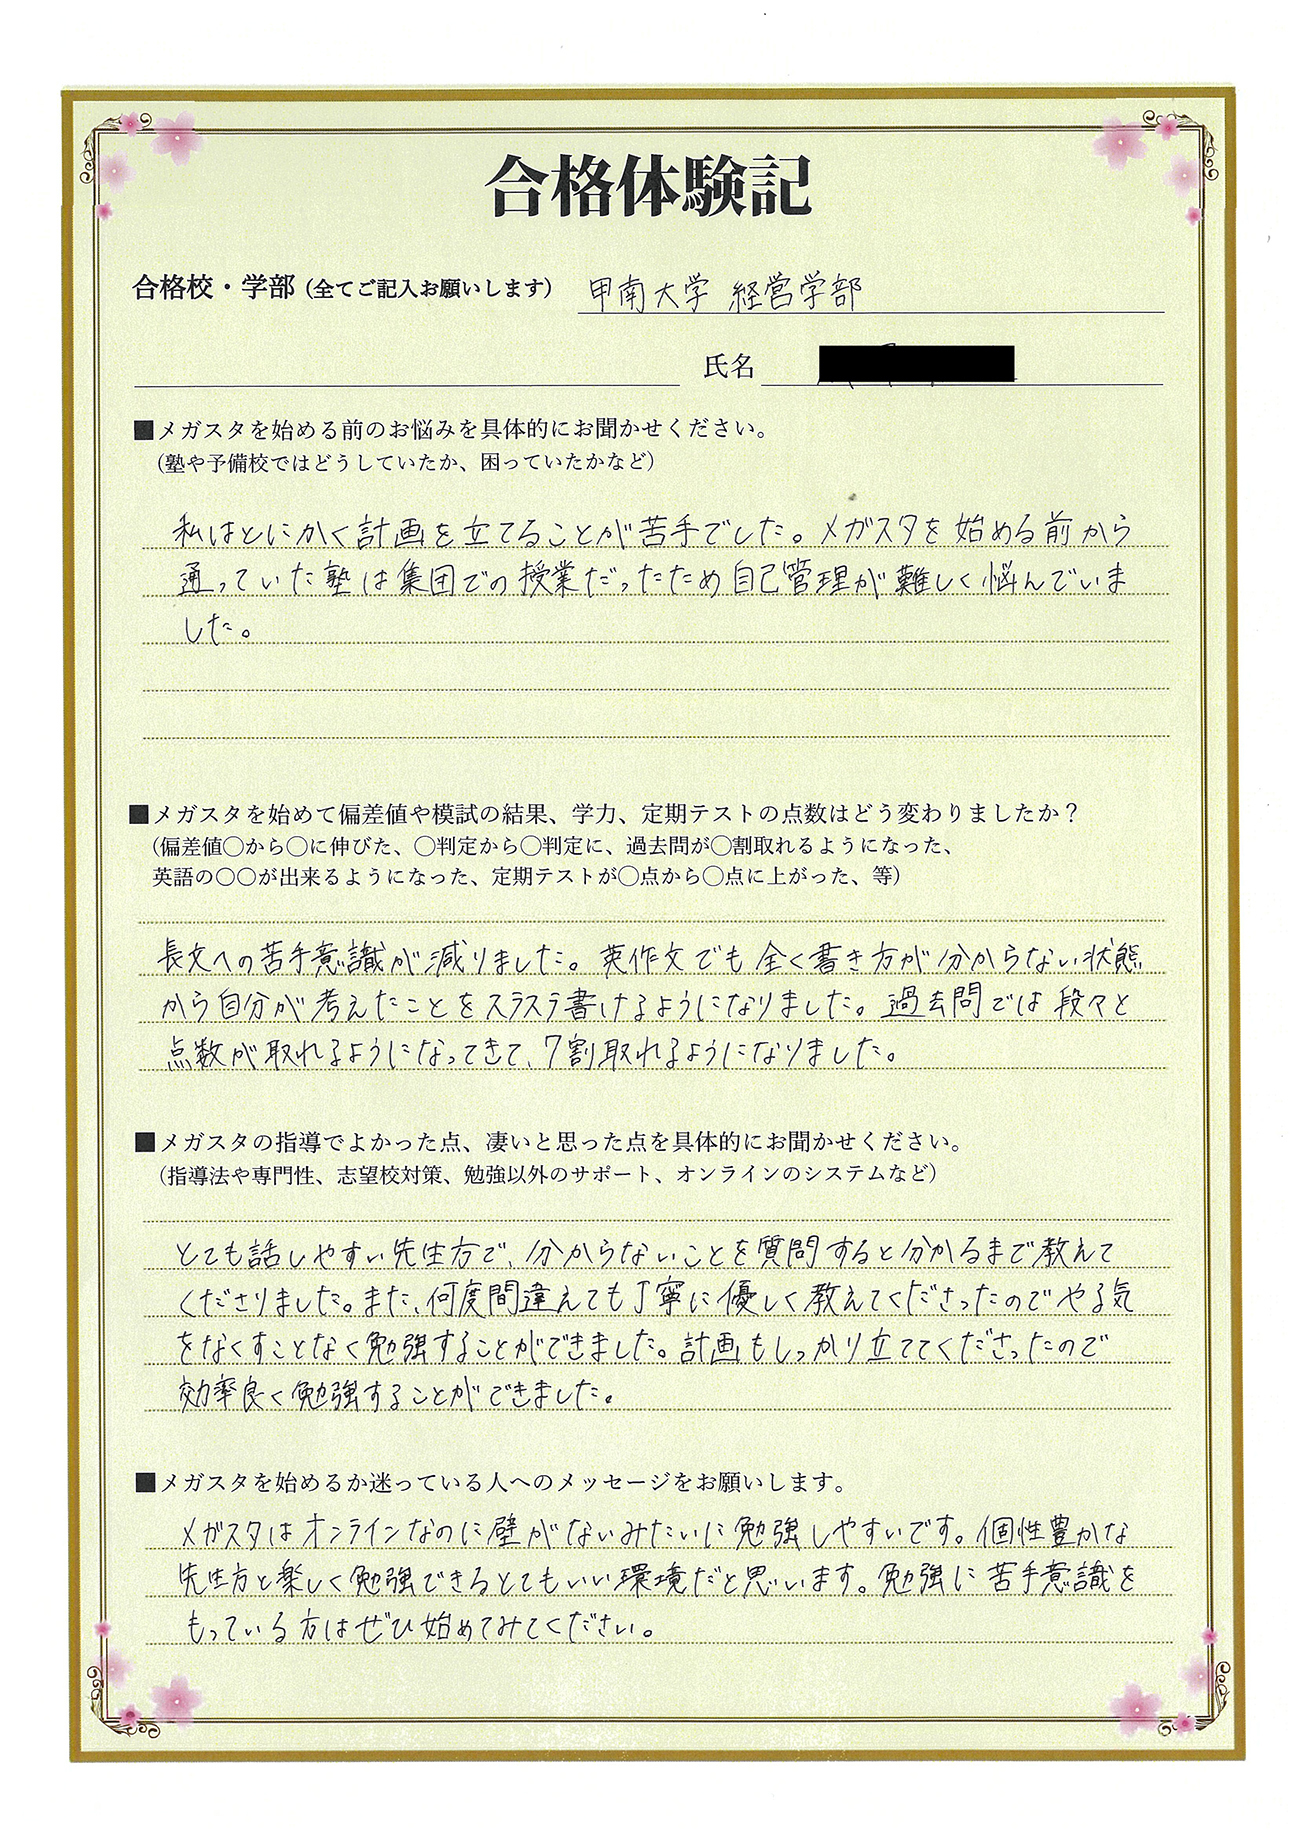 合格体験記
合格校・学部(全てご記入お願いします) 甲南大学 経営学部
氏名
■メガスタを始める前のお悩みを具体的にお聞かせください。
(塾や予備校ではどうしていたか、困っていたかなど)
私はとにかく計画を立てることが苦手でした。メガスタを始める前から
通っていた塾は集団での授業だったため自己管理が難しく悩んでいま
した。
■メガスタを始めて偏差値や模試の結果、学力、定期テストの点数はどう変わりましたか?
(偏差値〇から〇に伸びた、〇判定から〇判定に、過去問が〇割取れるようになった、
英語の〇〇が出来るようになった、定期テストが〇点から〇点に上がった、等)
長文への苦手意識が減りました。英作文でも全く書き方が分からない状態
から自分が考えたことをスラスラ書けるようになりました。過去問では段々と
点数が取れるようになってきて、7割取れるようになりました。
■メガスタの指導でよかった点、凄いと思った点を具体的にお聞かせください。
(指導法や専門性、志望校対策、勉強以外のサポート、オンラインのシステムなど)
とても話しやすい先生方で、分からないことを質問すると分かるまで教えて
くださりました。また、何度間違えても丁寧に優しく教えてくださったのでやる気
をなくすことなく勉強することができました。計画もしっかり立ててくださったので
効率良く勉強することができました。
■メガスタを始めるか迷っている人へのメッセージをお願いします。
メガスタはオンラインなのに壁がないみたいに勉強しやすいです。個性豊かな
先生方と楽しく勉強できるとてもいい環境だと思います。勉強に苦手意識を
もっている方はぜひ始めてみてください。